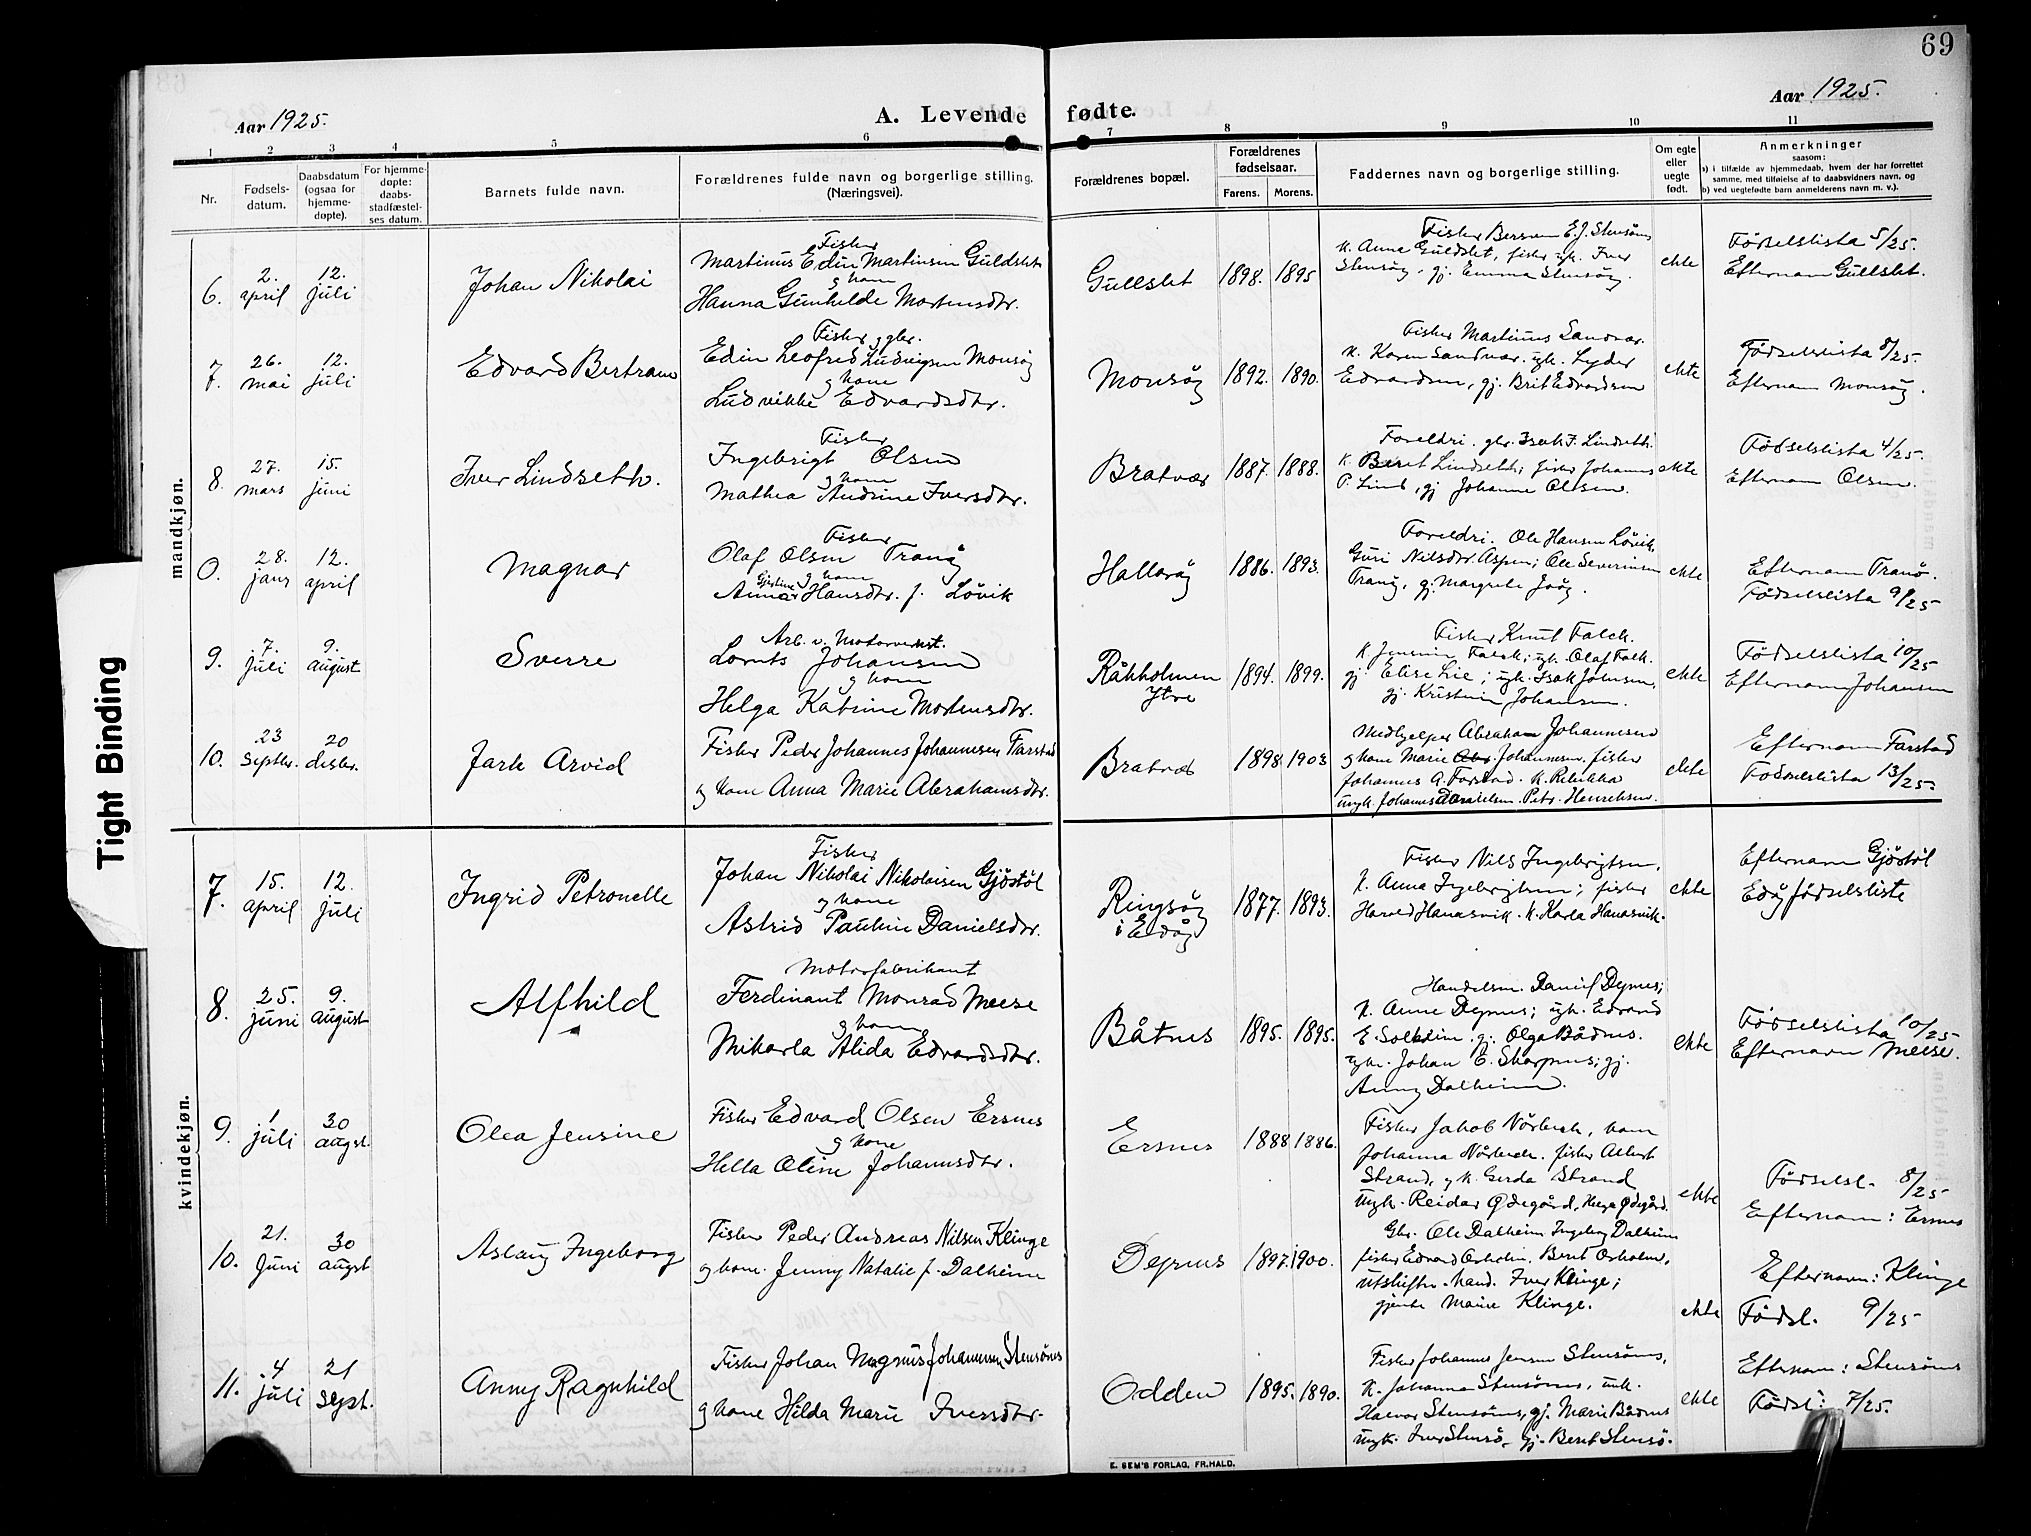 69
Aar 1925.
A. Levende fødte.
Aar 1925.
1 2 3 4 5 6 7 8 9 10 11
Nr.
Fødsels-
datum.
Daabsdatum
(ogsaa for
hjemme-
døpte).
For hjemme-
døpte:
daabs-
stadfæstel-
ses datum.
Barnets fulde navn.
Forældrenes fulde navn og borgerlige stilling.
(Næringsvei).
Forældrenes bopæl.
Forældrenes
fødselsaar.
Farens. Morens.
Faddernes navn og borgerlige stilling.
Om egte
eller
uegte
født.
Anmerkninger
saasom:
a) i tilfælde av hjemmedaab, hvem der har forrettet
samme, med tilføielse af to daabsvidners navn, og
b) ved uegtefødte barn anmelderens navn m. v.).
mandkjøn.
6. 2. april 12. juli
Johan Nikolai
Fisker
Martinus Edin Martinsen Guldslet
og kone
Hanna Gunhilde Mortensdtr.
Gullslet 1898. 1895
Fisker Bersven E.J. Stensøns
k. Anna Guldslet, fisker ugk. Iver
Stensøy, gj. Emma Stensøy.
ekte
Fødselslista 5/25.
Efternam Gullslet.
7. 26. mai 12. juli
Edvard Bertram
Fisker og gbr.
Edin Leofred Ludvigsen Monsøy
og kone
Ludvikke Edvardsdtr.
Monsøy 1892. 1890.
Fisker Martinus Sandvær.
k. Karen Sandvær. ugk. Lyder
Edvardsen, gj. Brit Edvardsen
ekte
Fødselslista 8/25.
Efternam Monsøy.
8. 27. mars 15. juni
Iver Lindseth.
Fisker
Ingebrigt Olsen
og kone
Mathea Andrine Iversdtr.
Bratvær 1887. 1888.
Foreldri. gbr. Isak I. Lindseth.
k. Beret Lindseth; fisker Johannes
P. Lind, gj Johanne Olsen.
ekte
Fødselslista 4/25.
Efternam Olsen.
0. 28. janr 12. april
Magnar
Fisker
Olaf Olsen Tranøy
Gjertine og kone
Anna Hansdtr. f. Løvik
Hallarøy 1886. 1893.
Foreldri. Ole Hansen Løvik.
Guri Nilsdtr. Aspen; Ole Severinsen
Tranøy, gj. Margrete
ekte
Efternam Tranø.
Fødselslista 9/25
9. 7. juli 9. august
Sverre
Arb. v. Motorverkst.
Lornts Johansen
og kone
Helga Katrine Mortensdtr.
Råkholmen
Ytre
1894. 1899.
Fisker Knut Falch.
k. Falch; ugk. Olaf Falk.
gj. Elise Lie; ugk. Isak Johnsen,
gj. Kristine Johansen.
ekte
Fødselslista 10/25
Efternam Johansen
10. 23 septbr. 20 desbr.
Jarle Arvid
Fisker Peder Johannes Johannesen Farstad
og kone Anna Marie Abrahamsdtr.
Bratvær 1898. 1903
Medhjelper Abraham Johannesen
og kone Marie Johannesen, fisker
Johannes A. Farstad. k. Rebekka
ungk. Johannes Danielsen. Petr. Henriksen.
ekte
Efternam Farstad
Fødselslista 13/25.
kvindekjøn.
7. 15. april 12. juli
Ingrid Petronelle
Fisker
Johan Nikolai Nikolaisen Gjøstøl
og kone
Astrid Pauline Danielsdtr.
Ringsøy
i Edøy
1877. 1893.
Fisker Nils Ingebrigtsen,
k. Anna Ingebrigtsen; fisker
Harald Hanasvik. k. Karla Hanasvik.
ekte
Efternam Gjøstøl
Edøy fødselsliste
8. 25. juni 9. august
Alfhild
Motorfabrikant
Ferdinant Monrad Meese
og kone
Mikarla Alida Edvardsdtr.
Båtnes 1895. 1895.
Handelsm. Daniel Dyrnes;
k. Anne Dyrnes; ugk. Edvard
E. Solheim. gj. Olga Bådnes.
ugk. Johan E. Skarpnes; gj.
Anny Dalheim.
ekte
Fødselslista 10/25
Efternavn Meese.
9. 1 juli 30 augst.
Olea Jensine
Fisker Edvard Olsen Ersnes
og kone
Hella Oline Johannesdtr.
Ersnes 1888 1886.
Fisker Jakob Nørbech, kone
Johanna Nørbech. fisker Albert
Strand, og k. Gerda Strand
ungk. Reidar Ødegård, Helga Ødegård.
ekte
Fødselsl. 8/25
Efternam: Ersnes
10. 21. juni 30 augst
Aslaug Ingeborg
Fisker Peder Andreas Nilsen Klinge
og kone. Jenny Natalie f. Dalheim
Dyrnes 1897. 1900.
Gbr. Ole Dalheim Ingeborg Dalheim
fisker Edvard Orholm. Berit Orholm,
utskiftn. kand. Iver Klinge;
gjente Marie Klinge.
ekte
Efternavn: Klinge
Fødsl. 9/25
11. 4 juli 21 sept.
Anny Ragnhild
Fisker Johan Magnus Johannessen Stensønes
og kone Hilda Marie Iversdtr.
Odden 1895. 1890.
Fisker Johannes Jensen Stensønes,
k. Johanna Stensønes, unk.
Halvor Stensønes, gj. Marie Bådnes
ungk. Iver Stensø, gj. Beret Stensø.
ekte
Efternam: Stensønes
Fødsl: 7/25.
E. SEM'S FORLAG, FR.HALD.
Tight Binding